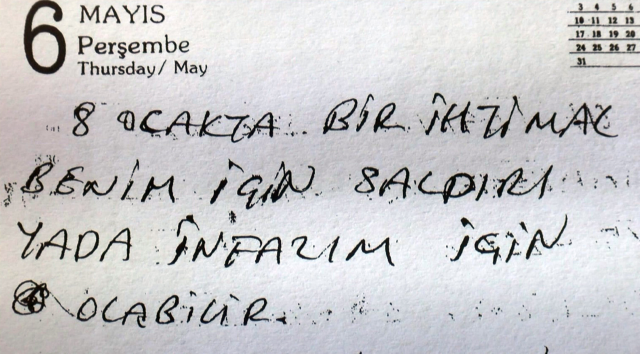 6
MAYIS
Perşembe
Thursday/ May
3 4 5 6
10 11 12 13
17 18 19 20
24 25 26 27
31
8 OCAKTA BİR İHTİMAL
BENİM İÇİN SALDIRI
YADA İNFAZIM İÇİN
OLABİLİR.